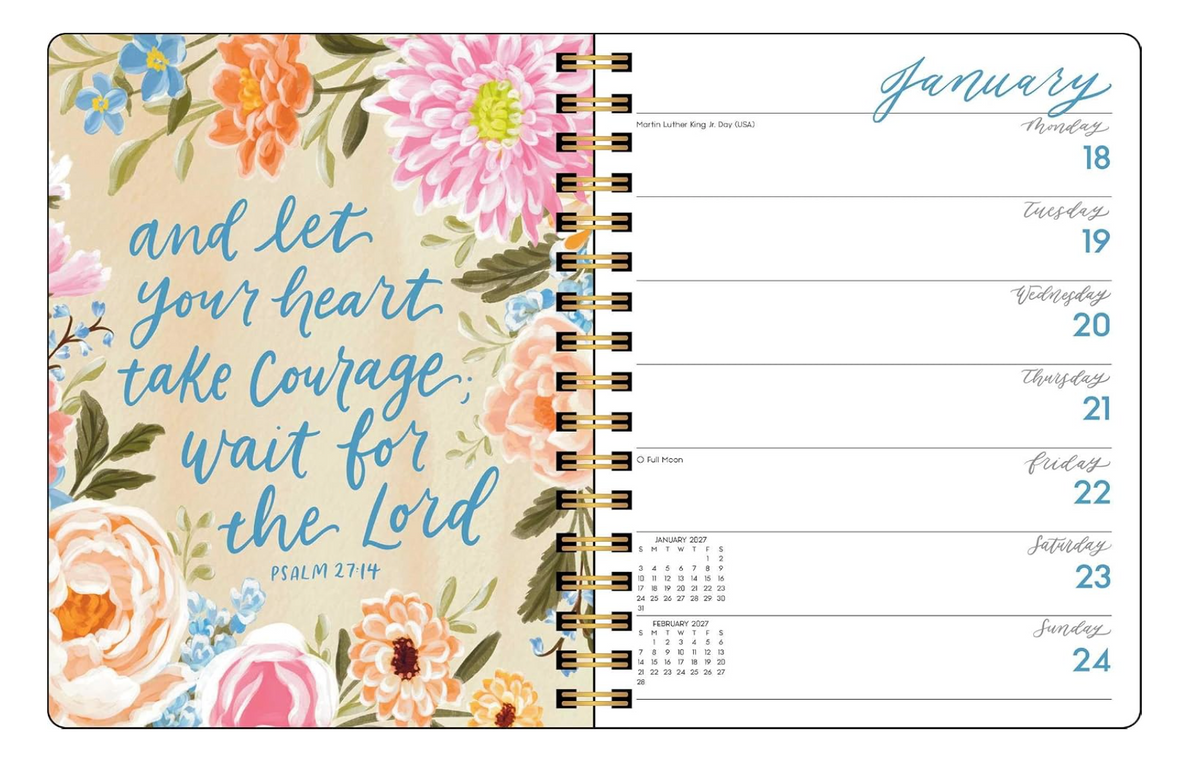 and let
your heart
take Courage;
wait for
the Lord
PSALM 27:14
January
Martin Luther King Jr. Day (USA)
Monday
18
Tuesday
19
Wednesday
20
Thursday
21
O Full Moon
Friday
22
Saturday
23
JANUARY 2027
S M T W T F S
1 2
3 4 5 6 7 8 9
10 11 12 13 14 15 16
17 18 19 20 21 22 23
24 25 26 27 28 29 30
31
Sunday
24
FEBRUARY 2027
S M T W T F S
1 2 3 4 5 6
7 8 9 10 11 12 13
14 15 16 17 18 19 20
21 22 23 24 25 26 27
28